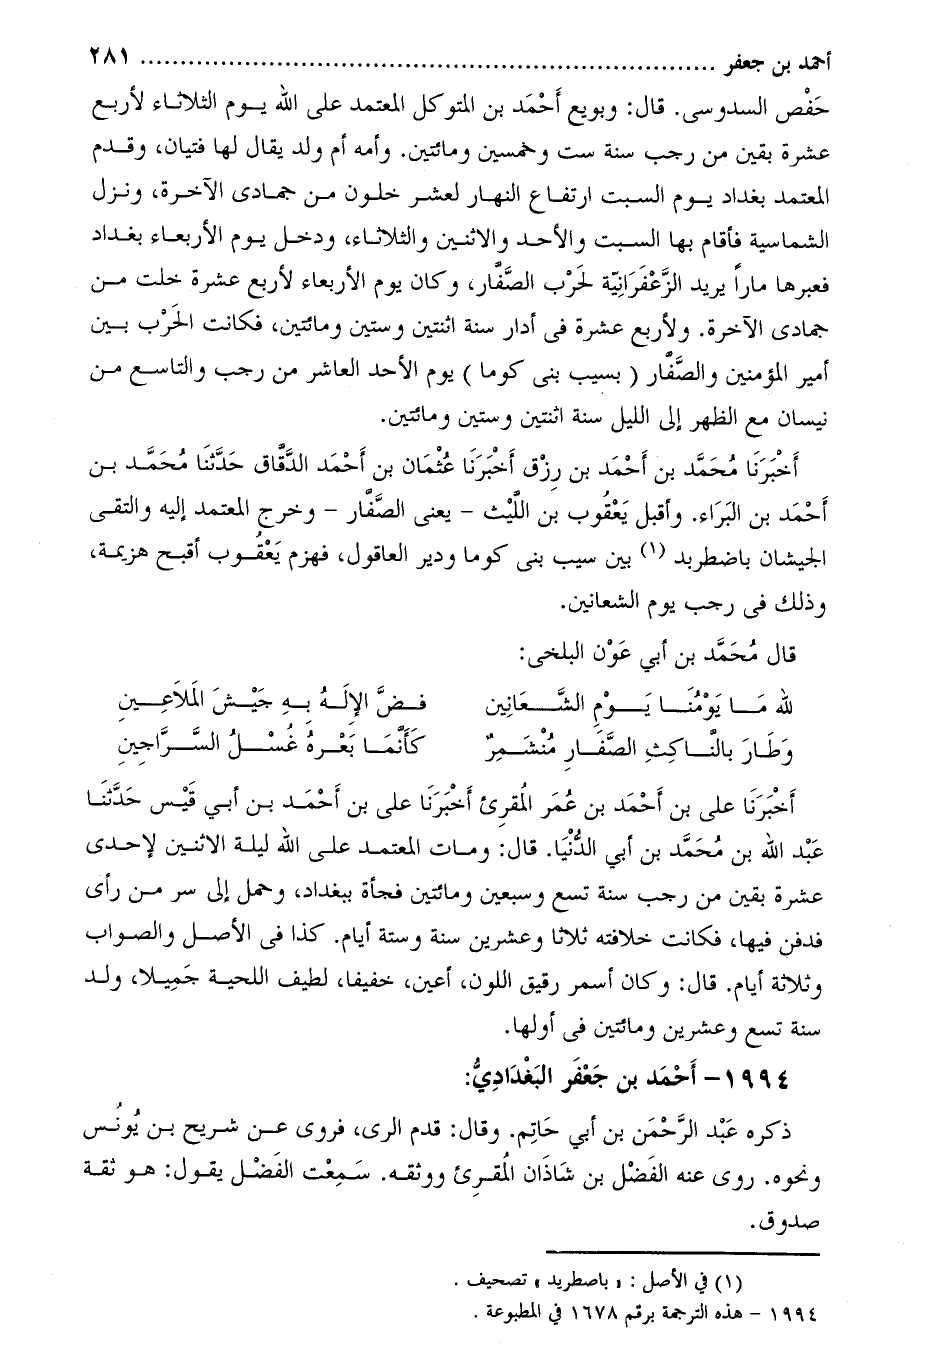 أحمد بن جعفر ........................................................................ ٢٨١
حَفْص السدوسى. قال: وبويع أَحْمَد بن المتوكل المعتمد على الله يوم الثلاثاء لأربع
عشرة بقين من رجب سنة ست وخمسين ومائتين. وأمه أم ولد يقال لها فتيان، وقدم
المعتمد بغداد يوم السبت ارتفاع النهار لعشر خلون من جمادى الآخرة، ونزل
الشماسية فأقام بها السبت والأحد والاثنين والثلاثاء، ودخل يوم الأربعاء بغداد
فعبرها ماراً يريد الزَّعْفَرَانِيّة لحَرْب الصَّفَّار، وكان يوم الأربعاء لأربع عشرة خلت من
جمادى الآخرة. ولأربع عشرة فى أدار سنة اثنتين وستين ومائتين، فكانت الحَرْب بين
أمير المؤمنين والصَّفَّار ( بسيب بنى كوما ) يوم الأحد العاشر من رجب والتاسع من
نيسان مع الظهر إلى الليل سنة اثنتين وستين ومائتين.
أَخْبَرَنَا مُحَمَّد بن أَحْمَد بن رِزْق أَخْبَرَنَا عُثْمَان بن أَحْمَد الدَّقَّاق حَدَّثَنَا مُحَمَّد بن
أَحْمَد بن البَرَاء. وأقبل يَعْقُوب بن اللَّيْث - يعنى الصَّفَّار - وخرج المعتمد إليه والتقى
الجيشان باضطربد (١) بين سيب بنى كوما ودير العاقول، فهزم يَعْقُوب أقبح هزيمة،
وذلك فى رجب يوم الشعانين.
قال مُحَمَّد بن أبي عَوْن البلخى:
لله مَا يَوْمُنَا يَوْم الشَّعَانِين فَضَّ الإِلَهُ بِهِ جَيْشَ المَلَاَعِين
وَطَارَ بالنَّاكِثِ الصَّفَّار مُنْشَمِرٌ كَأَنَّمَا بَعْرهُ غَسْلُ السَّرَّاجِين
أَخْبَرَنَا على بن أَحْمَد بن عُمَر المُقرئ أَخْبَرَنَا على بن أَحْمَد بن أبي قَيْس حَدَّثَنَا
عَبْد الله بن مُحَمَّد بن أبي الدُّنْيَا. قال: ومات المعتمد على الله ليلة الاثنين لإحدى
عشرة بقين من رجب سنة تسع وسبعين ومائتين فجأة ببغداد، وحمل إلى سر من رأى
فدفن فيها، فكانت خلافته ثلاثا وعشرين سنة وستة أيام. كذا فى الأصل والصواب
وثلاثة أيام. قال: وكان أسمر رقيق اللون، أعين، خفيفا، لطيف اللحية جَمِيلا، ولد
سنة تسع وعشرين ومائتين فى أولها.
١٩٩٤- أَحْمَد بن جَعْفَر البَغْدَادِيُّ:
ذكره عَبْد الرَّحْمَن بن أبي حَاتِم. وقال: قدم الرى، فروى عن شريح بن يُونُس
ونحوه. روى عنه الفَضْل بن شَاذَان المُقرِئ ووثقه. سَمِعْت الفَضْل يقول: هو ثقة
صدوق.
(١) في الأصل : « باصطريد » تصحيف .
١٩٩٤ - هذه الترجمة برقم ١٦٧٨ في المطبوعة .